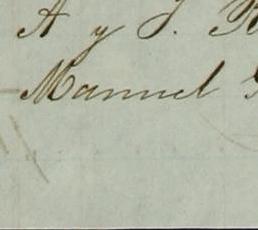 A y J.
Manuel